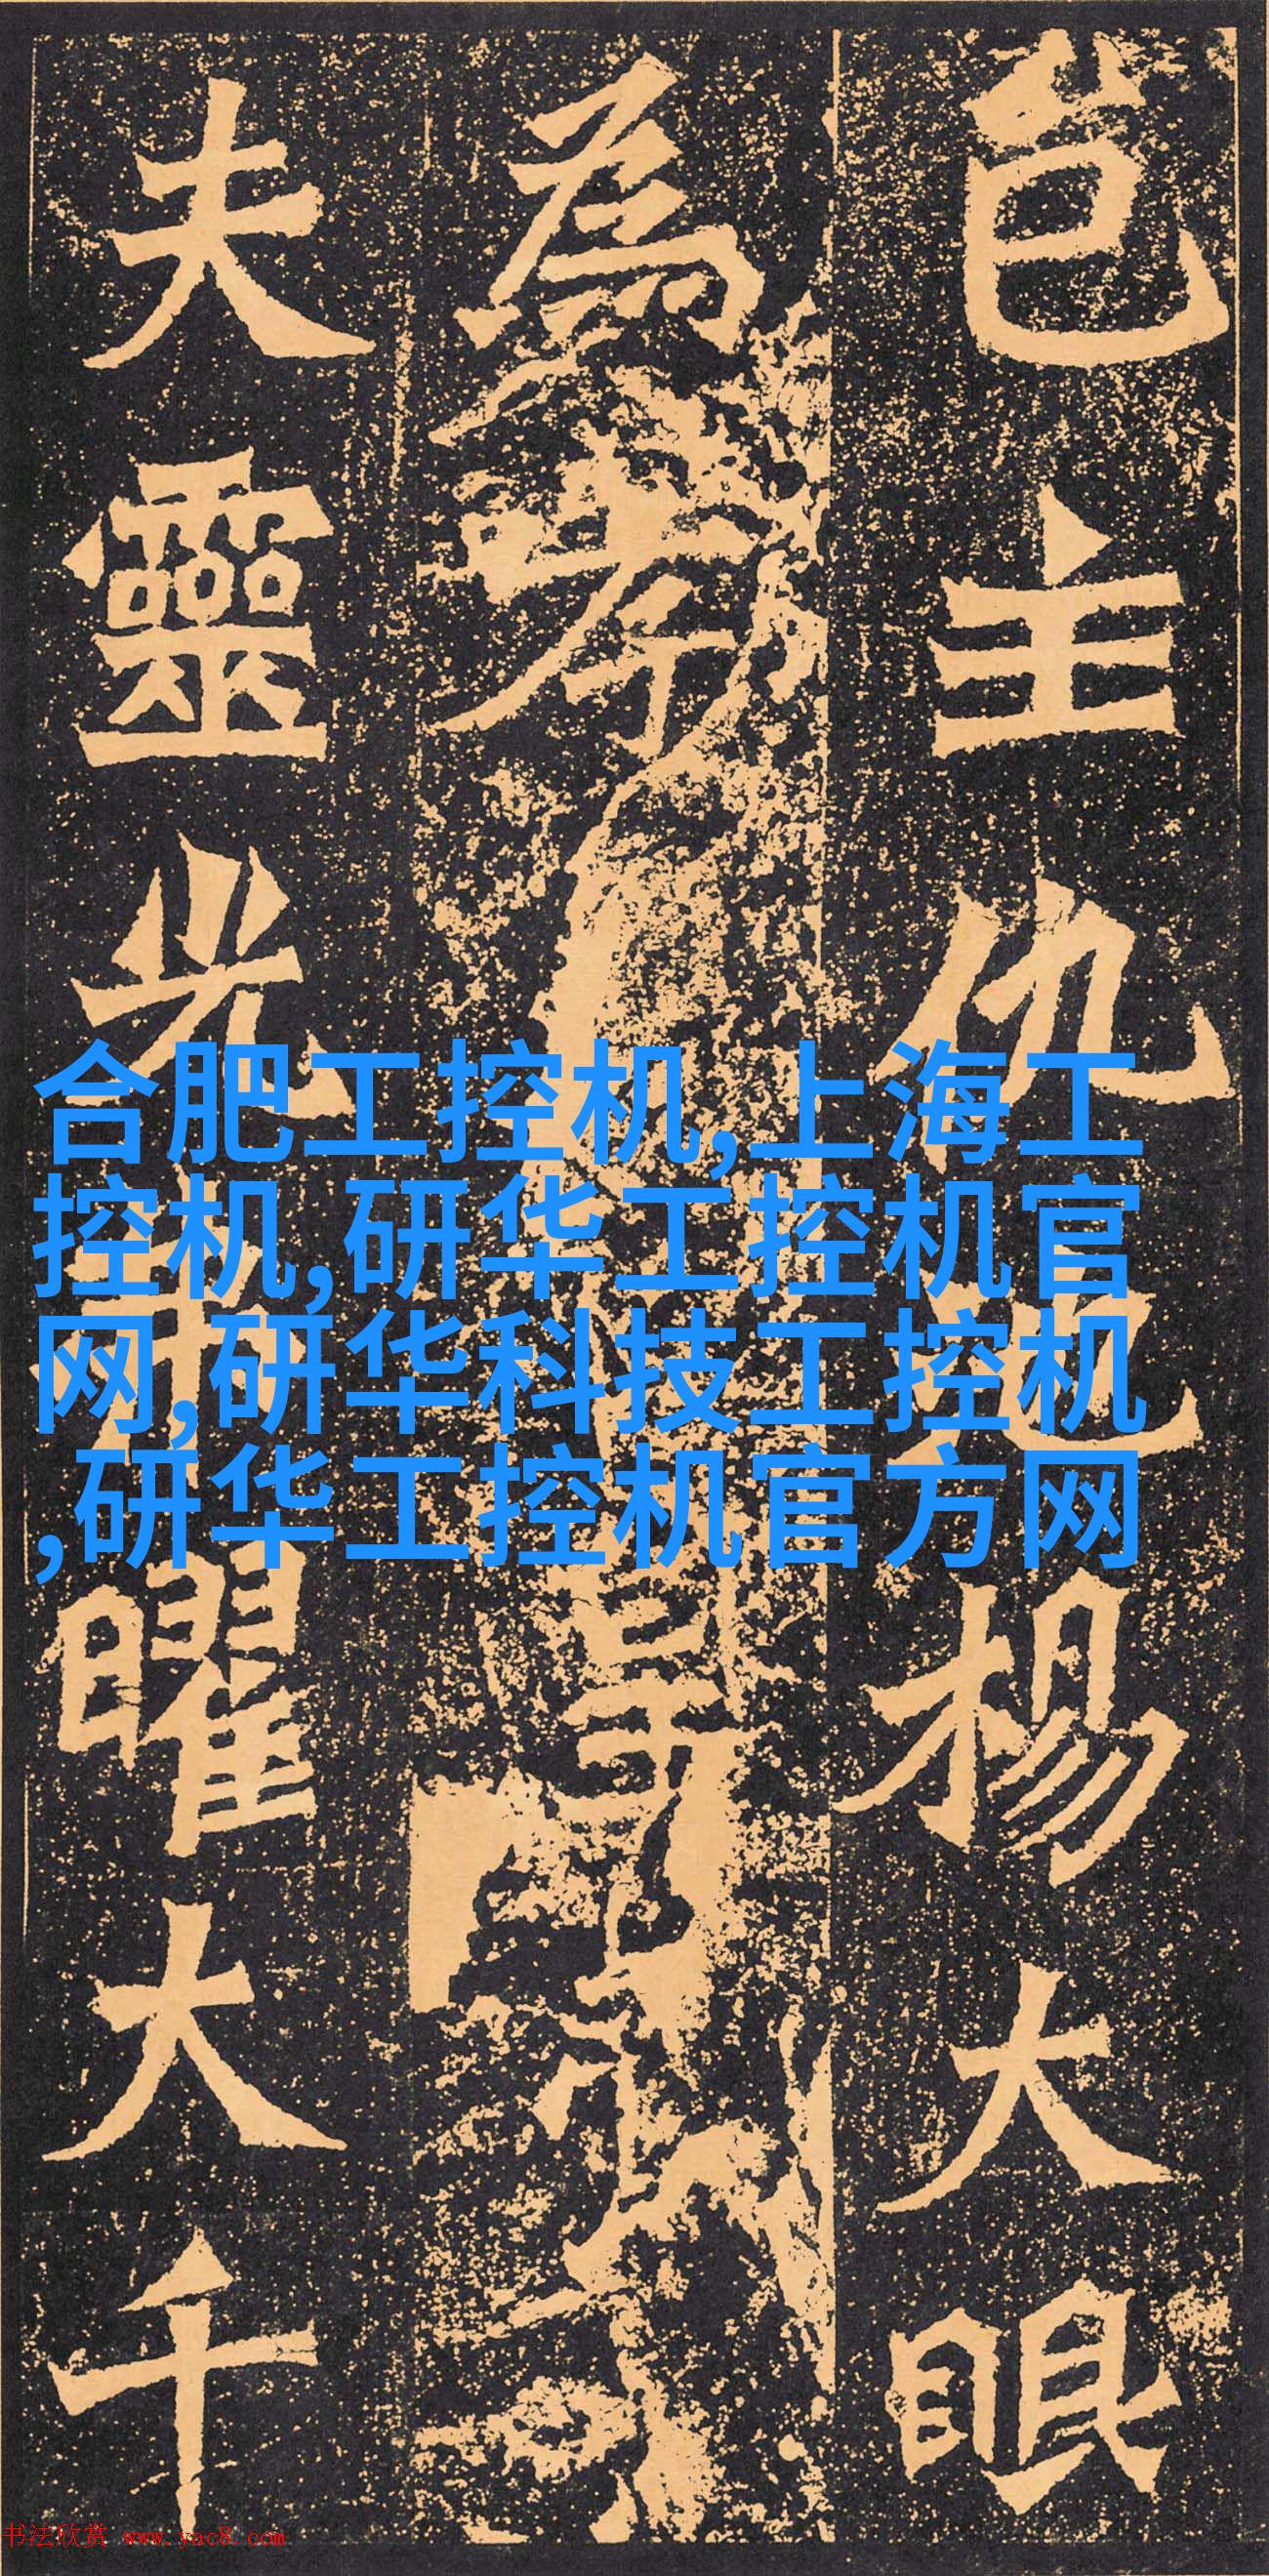 邑主仇池楊大眼
為孝
夫靈光弗曜大千
合肥工控机,上海工
控机,研华工控机官
网,研华科技工控机
,研华工控机官方网
书法欣赏 www.yac8.com